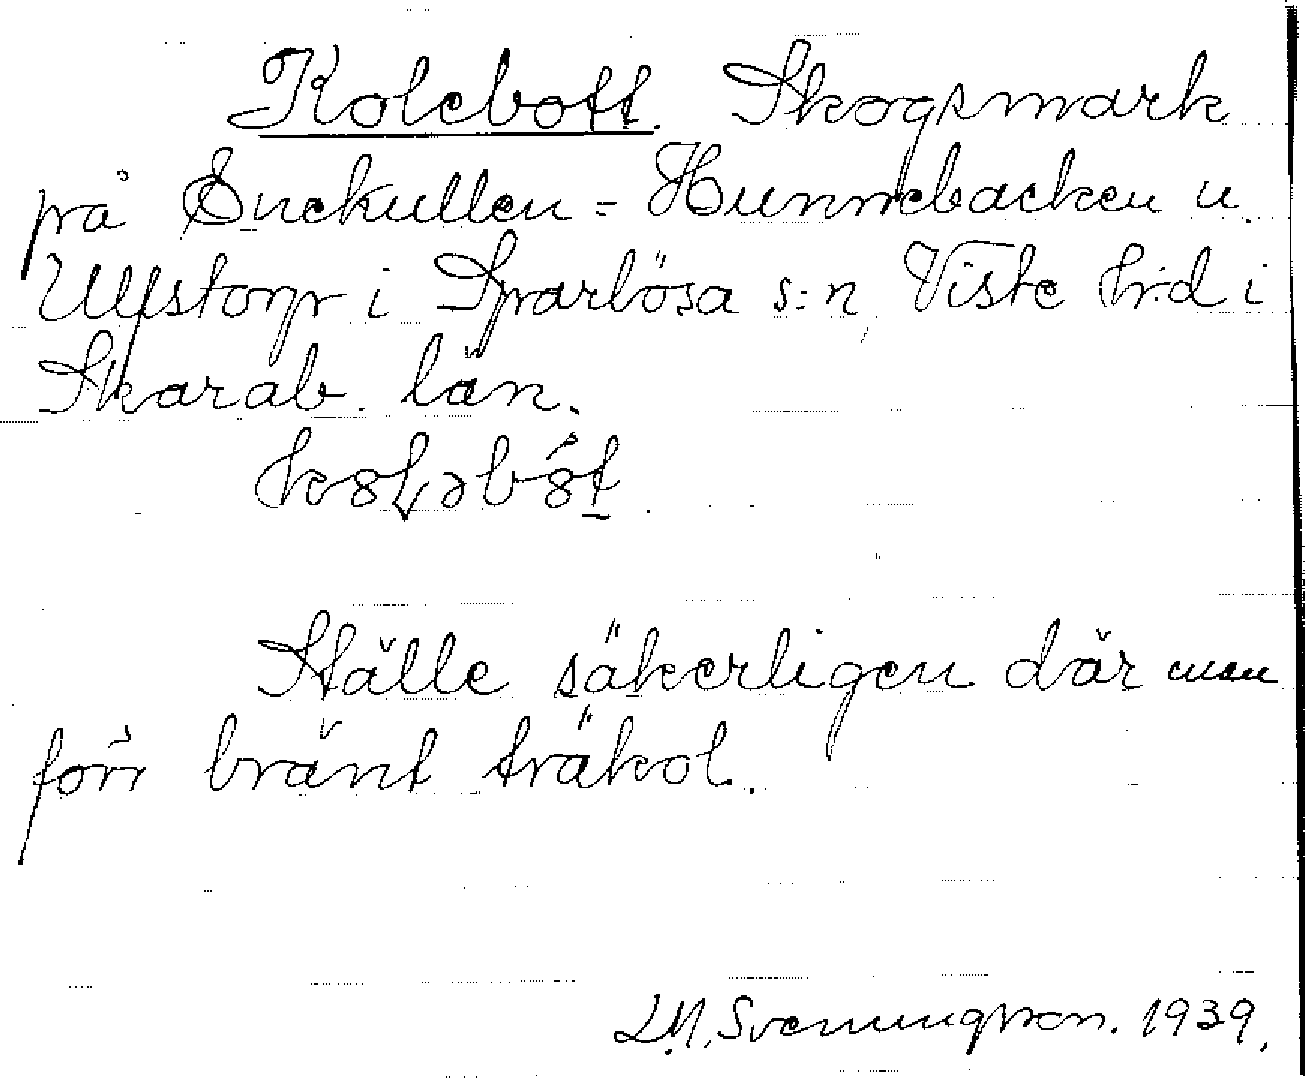 Kolebott. Skogsmark
på Enekullen-Hunnebacken u.
Ulfstorp i Sparlösa s:n, Viste h:d i
Skarab. län.
Ställe säkerligen där man
förr bränt träkol.
L.N. Svenungsson. 1939.